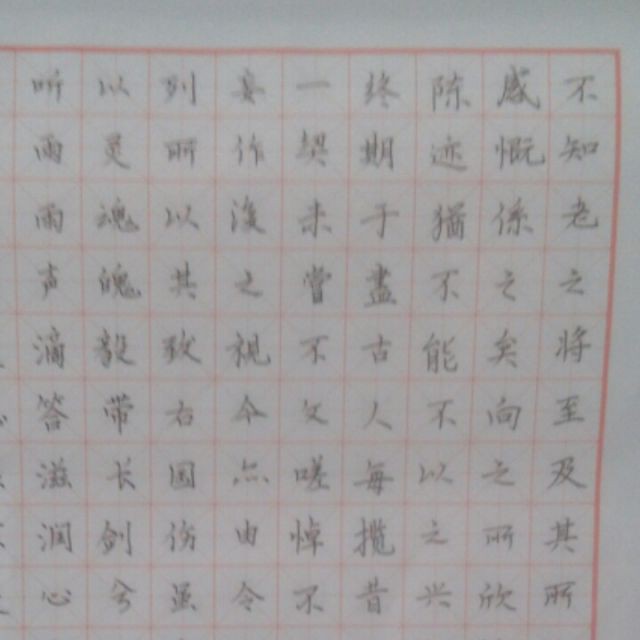 不知老之将至及其所
感慨係之矣向之所欣
陈迹猶不能不以之兴
终期于盡古人每揽昔
一契未嘗不文嗟悼不
妄作後之視今亦由今
列所以其致右国伤虽
以灵魂魄毅带长剑兮
听雨雨声滴答滋润心